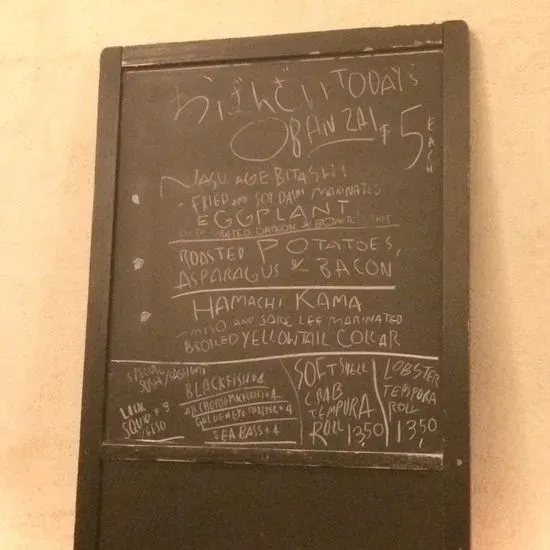 おばんざい TODAY'S
OBANZAI $5 EACH
NASU AGEBITASHI
-FRIED AND SOY DASHI MARINATED
EGGPLANT
GRATED DAIKON & BONITO FLAKES
ROASTED POTATOES,
ASPARAGUS & BACON
HAMACHI KAMA
-MISO AND SAKE LEE MARINATED
BROILED YELLOWTAIL COLLAR
SPECIAL
SUSHI/SASHIMI
LOCAL
SQUID $3
/GESO
BLACKFISH $4
GOLDENEYE SNAPPER $4
SEA BASS $4
SOFT SHELL
CRAB
TEMPURA
ROLL 13.50
LOBSTER
TEMPURA
ROLL
13.50